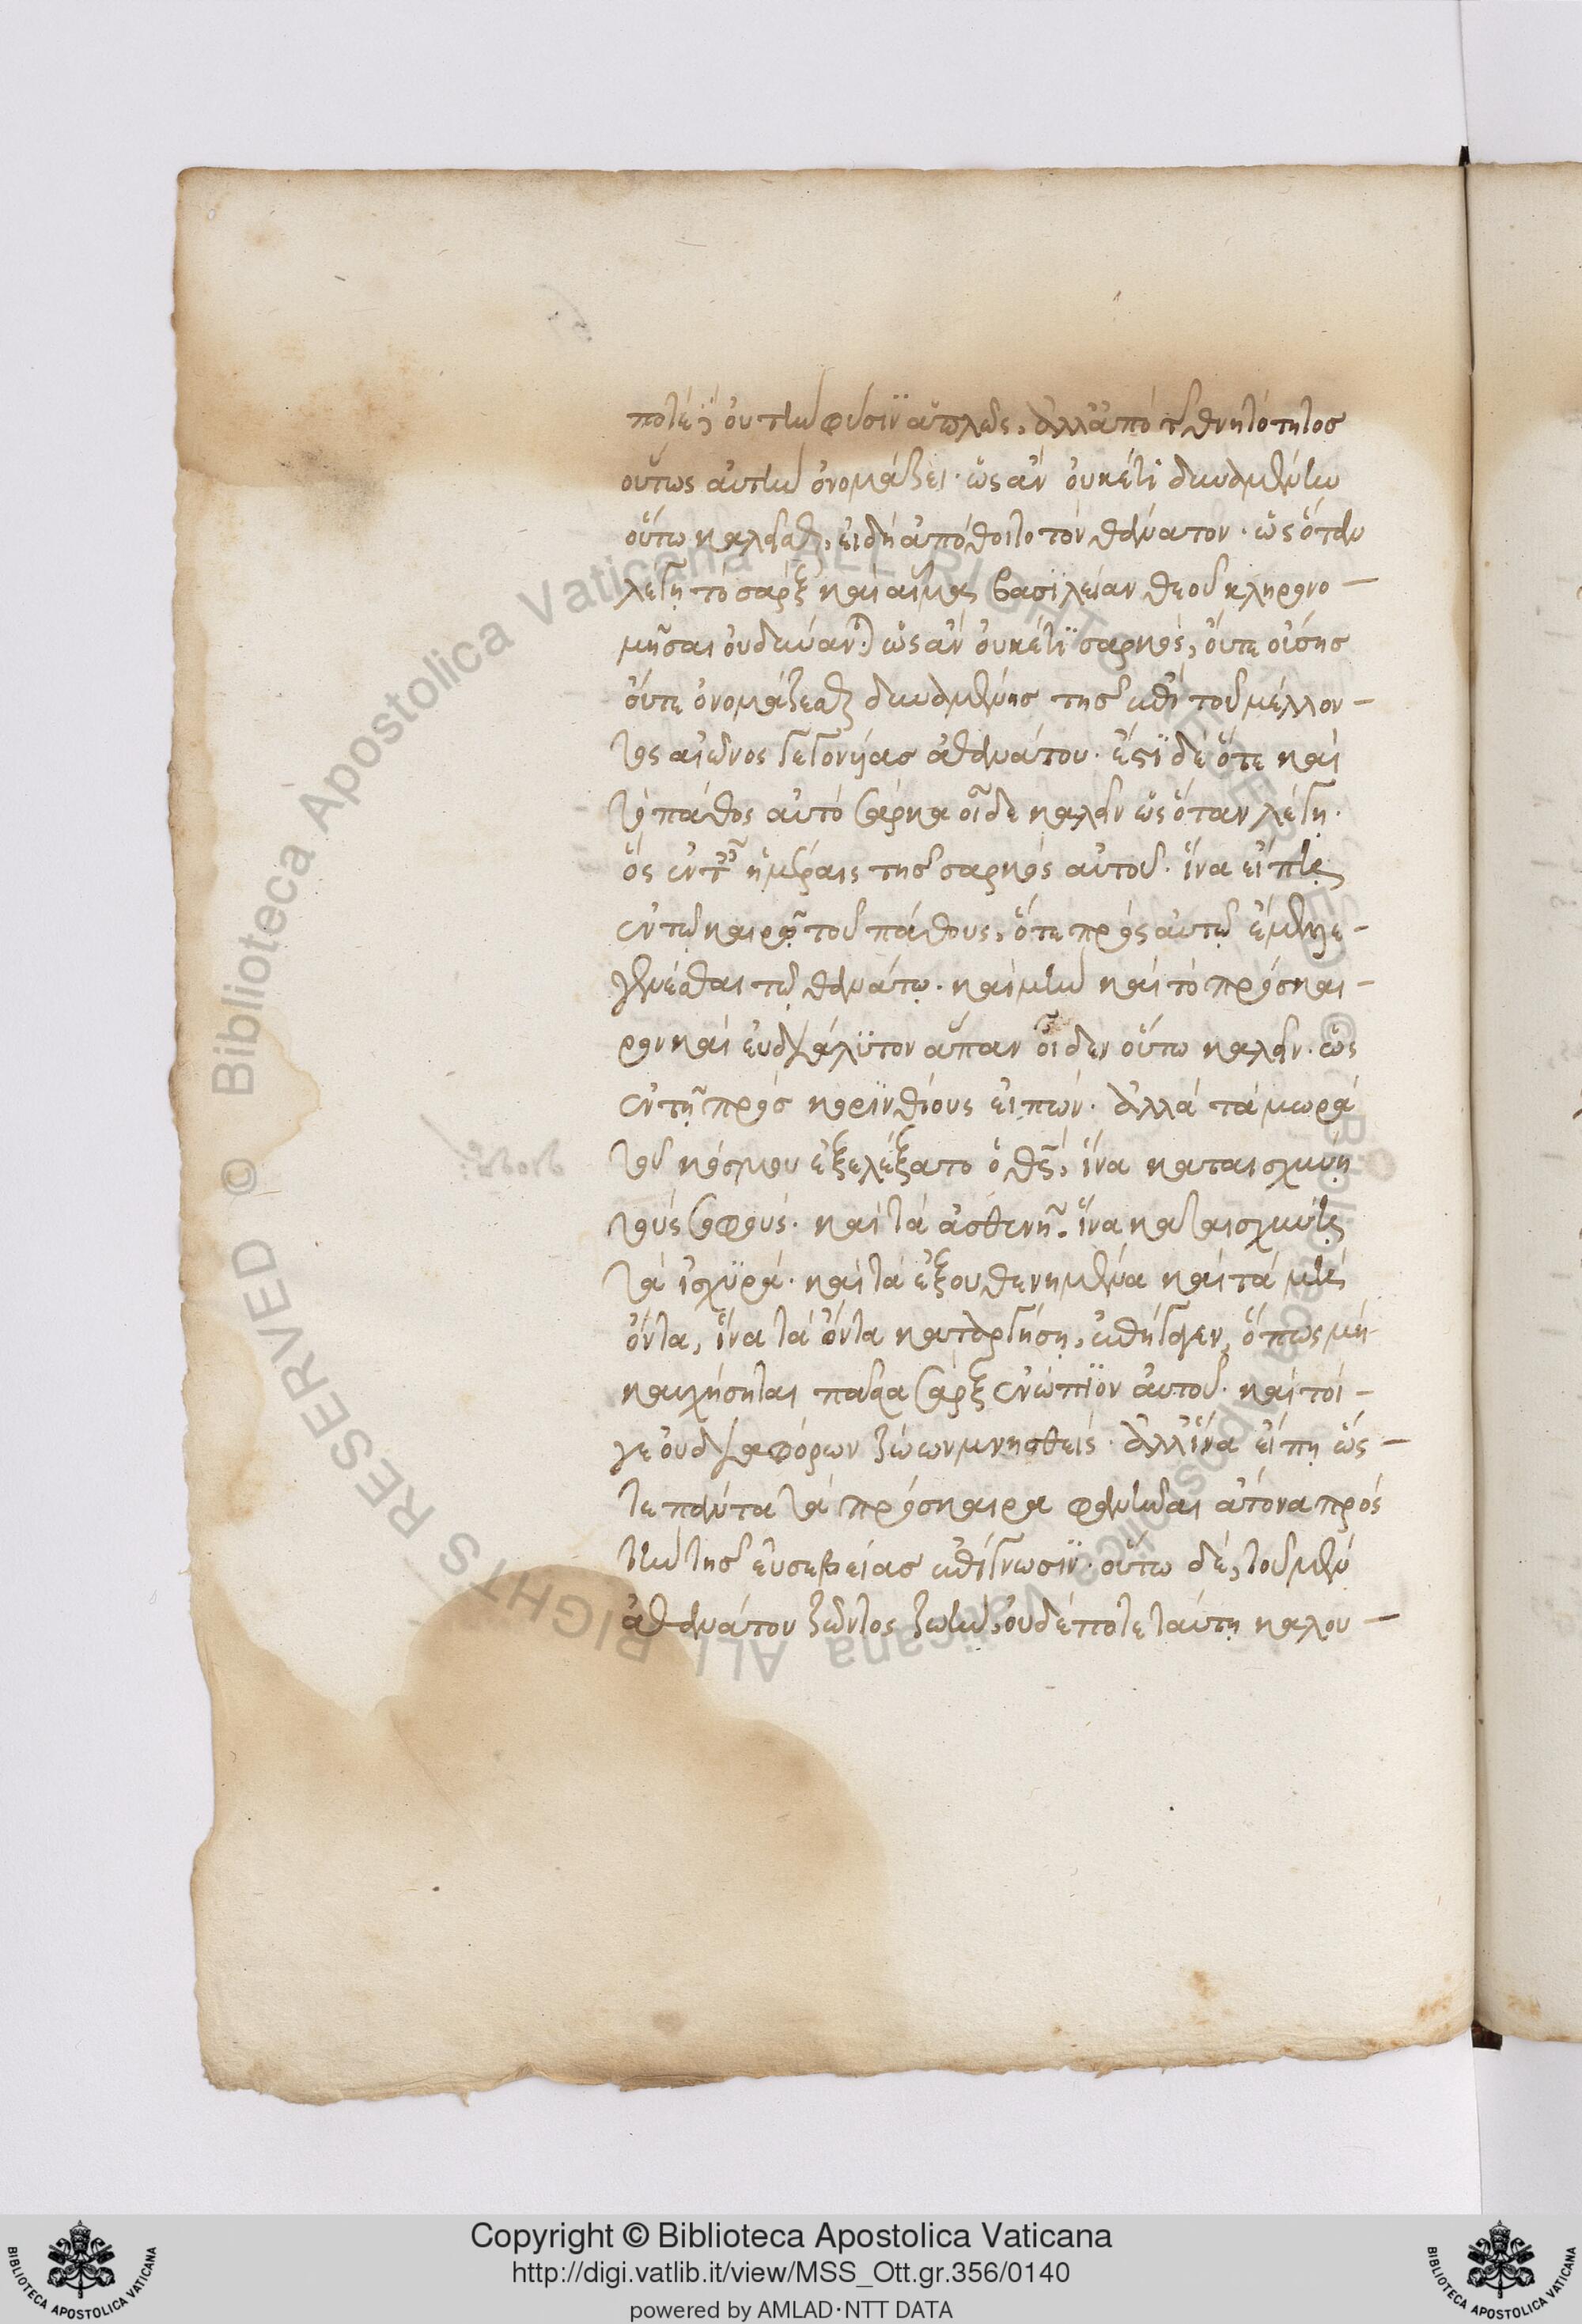 ποτέ· οὐ τὴν φύσιν ἁπλῶς, ἀλλ' ἀπὸ τῆς θνητότητος
οὕτως αὐτὴν ὀνομάζει· ὡς ἂν οὐκέτι δυναμένην
οὕτω καλεῖσθαι, εἰ δὴ ἀπόθοιτο τὸν θάνατον· ὡς ὅταν
λέγῃ τὸ σὰρξ καὶ αἷμα βασιλείαν θεοῦ κληρονο–
μῆσαι οὐ δύναν(ται) ὡς ἂν οὐκέτι σαρκὸς, οὔτε οὔσης
οὔτε ὀνομάζεσθαι δυναμένης τῆς ἐπὶ τοῦ μέλλον–
τος αἰῶνος γεγονυίας ἀθανάτου· ἔστι δὲ ὅτε καὶ
τὸ πάθος αὐτὸ σάρκα οἶδε καλεῖν ὡς ὅταν λέγῃ·
ὃς ἐν ταῖς ἡμέραις τῆς σαρκὸς αὐτοῦ· ἵνα εἴπῃ
ἐν τῷ καιρῷ τοῦ πάθους, ὅτε πρὸς αὐτῷ ἔμελλε
γενέσθαι τῷ θανάτῳ. καὶ μὴν καὶ τὸ πρόσκαι–
ρον καὶ εὐδιάλυτον ἅπαν οἶδεν οὕτω καλεῖν· ὡς
ἐν τῇ πρὸς κορινθίους εἰπών· ἀλλὰ τὰ μωρὰ
τοῦ κόσμου ἐξελέξατο ὁ θεὸς, ἵνα καταισχύνῃ
τοὺς σοφούς· καὶ τὰ ἀσθενῆ. ἵνα καταισχύνῃ
τὰ ἰσχυρά· καὶ τὰ ἐξουθενημένα καὶ τὰ μὴ
ὄντα, ἵνα τὰ ὄντα καταργήσῃ, ἐπήγαγεν, ὅπως μὴ
καυχήσηται πᾶσα σὰρξ ἐνώπιον αὐτοῦ· καίτοι–
γε οὐ διαφόρων ζώων μνησθείς· ἀλλ' ἵνα εἴπῃ ὥς–
τε πάντα τὰ πρόσκαιρα φανῆναι ἄτονα πρὸς
τὴν τῆς εὐσεβείας ἐπίγνωσιν· οὕτω δὲ, τοῦ μὲν
ἀθανάτου ζῶντος ζωὴν, οὐδέποτε ταύτῃ καλου–
Copyright © Biblioteca Apostolica Vaticana
http://digi.vatlib.it/view/MSS_Ott.gr.356/0140
powered by AMLAD·NTT DATA